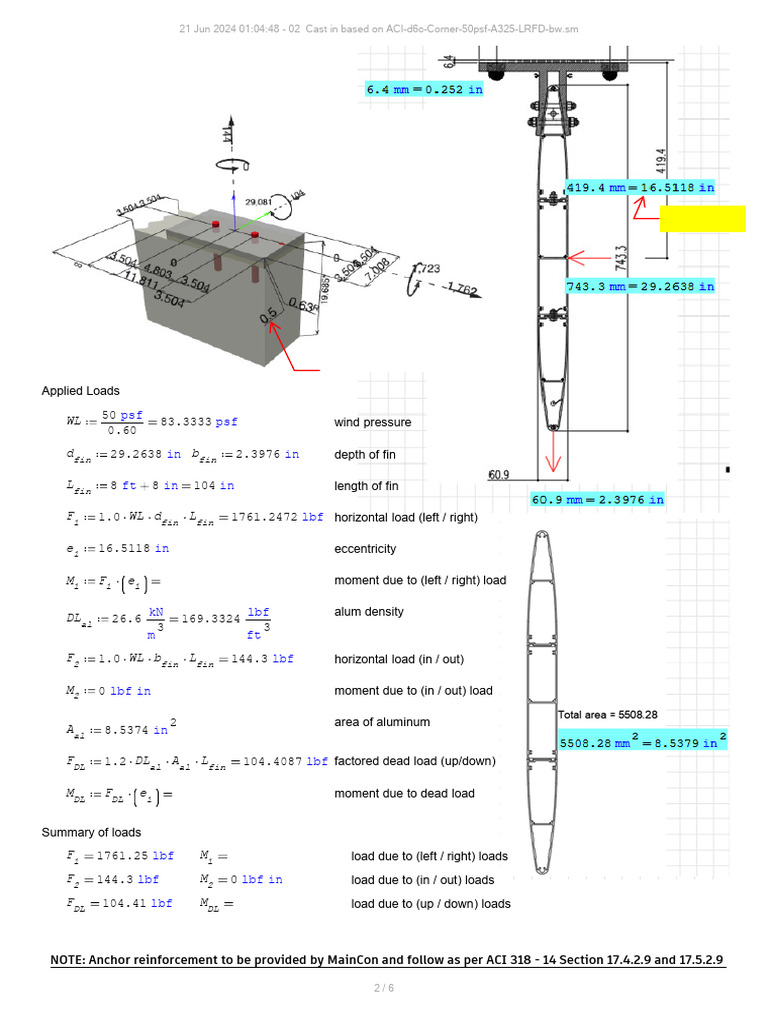 21 Jun 2024 01:04:48 - 02 Cast in based on ACI-d6o-Corner-50psf-A325-LRFD-bw.sm
6.4
6.4 mm=0.252 in
144
0
104
29.081
3.504
3.504
419.4
419.4 mm=16.5118 in
743.3
743.3 mm=29.2638 in
3.504
4.803
0
11.811
3.504
∞
0
3.504
3.504
7.008
1,723
1,762
19.685
0.5
60.9
60.9 mm=2.3976 in
Applied Loads
WL:=50 psf/0.60=83.3333 psf wind pressure
d_fin:=29.2638 in b_fin:=2.3976 in depth of fin
L_fin:=8 ft+8 in=104 in length of fin
F_1:=1.0·WL·d_fin·L_fin=1761.2472 lbf horizontal load (left / right)
e_1:=16.5118 in eccentricity
M_1:=F_1·(e_1)= moment due to (left / right) load
DL_al:=26.6 kN/m^3=169.3324 lbf/ft^3 alum density
F_2:=1.0·WL·b_fin·L_fin=144.3 lbf horizontal load (in / out)
M_2:=0 lbf in moment due to (in / out) load
A_al:=8.5374 in^2 area of aluminum
Total area = 5508.28
5508.28 mm^2=8.5379 in^2
F_DL:=1.2·DL_al·A_al·L_fin=104.4087 lbf factored dead load (up/down)
M_DL:=F_DL·(e_1)= moment due to dead load
Summary of loads
F_1=1761.25 lbf M_1= load due to (left / right) loads
F_2=144.3 lbf M_2=0 lbf in load due to (in / out) loads
F_DL=104.41 lbf M_DL= load due to (up / down) loads
NOTE: Anchor reinforcement to be provided by MainCon and follow as per ACI 318 - 14 Section 17.4.2.9 and 17.5.2.9
2 / 6